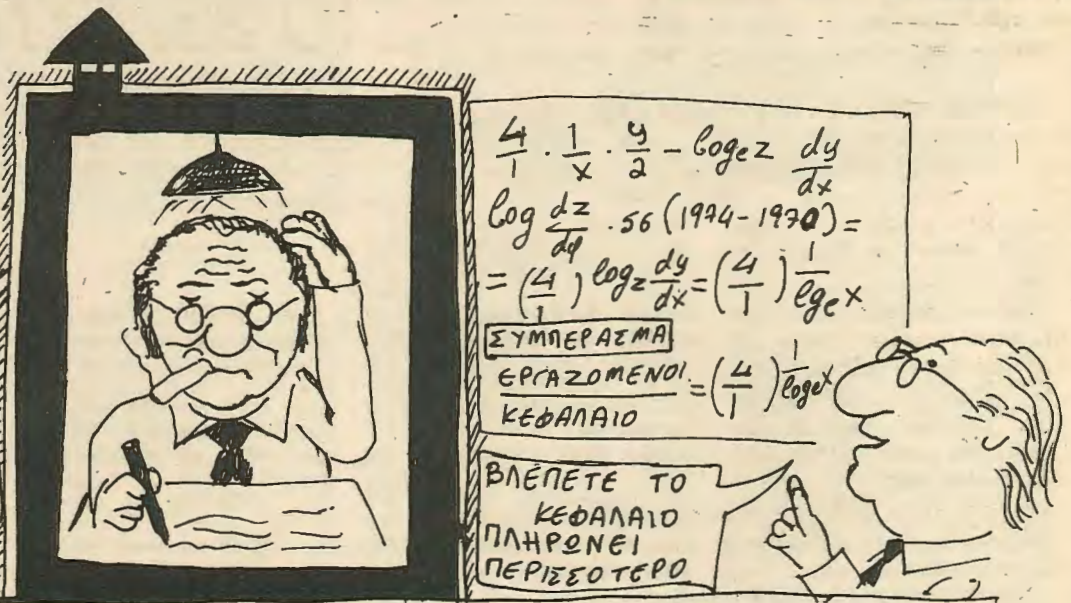 4/1 · 1/x · y/2 - logₑz dy/dx
log dz/dφ · 56 (1974-1970) =
= (4/1) logz dy/dx = (4/1) 1/lgₑx
ΣΥΜΠΕΡΑΣΜΑ
ΕΡΓΑΖΟΜΕΝΟΙ/ΚΕΦΑΛΑΙΟ = (4/1) 1/logₑx
ΒΛΕΠΕΤΕ ΤΟ
ΚΕΦΑΛΑΙΟ
ΠΛΗΡΩΝΕΙ
ΠΕΡΙΣΣΟΤΕΡΟ